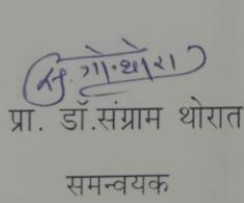 सं. गो. थोरात
प्रा. डॉ.संग्राम थोरात
समन्वयक